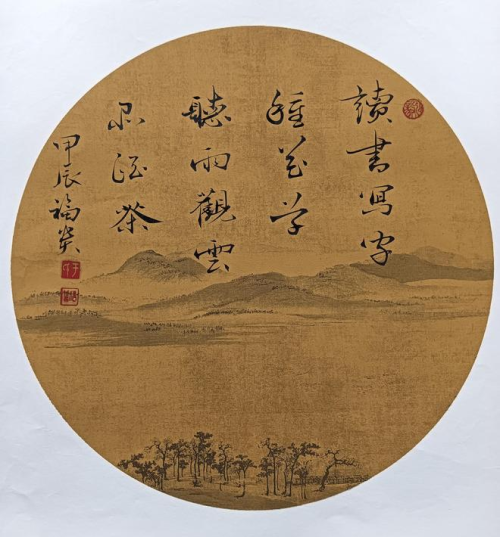 讀書寫字
種花草
聽雨觀雲
品酒茶
甲辰福